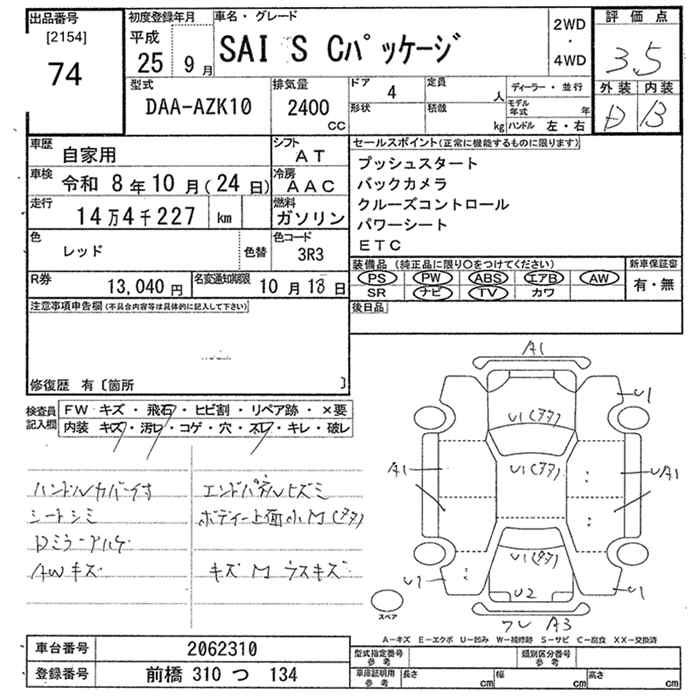 出品番号
[2154]
74
初度登録年月
平成
25 9月
車名・グレード
SAI S Cパッケージ
2WD
・
4WD
評価点
3.5
外装 内装
D B
型式
DAA-AZK10
排気量
2400
CC
ドア
4
定員
人
形状
積載
kg
ディーラー・並行
モデル年式 年
ハンドル 左・右
車歴
自家用
シフト
AT
車検
令和 8年10月(24日)
冷房
AAC
走行
14万4千227 km
燃料
ガソリン
色
レッド
色替
色コード
3R3
R券
13,040円
名変通知期限
10月18日
セールスポイント(正常に機能するものに限ります)
プッシュスタート
バックカメラ
クルーズコントロール
パワーシート
ETC
装備品(純正品に限り○をつけてください)
PS PW ABS エアB AW
SR ナビ TV カワ
新車保証書
有・無
後日品
注意事項申告欄(不具合内容等は具体的に記入して下さい)
修復歴 有〔箇所 〕
検査員記入欄
FW キズ・飛石・ヒビ割・リペア跡・×要
内装 キズ・汚レ・コゲ・穴・スレ・キレ・破レ
ハンドルカバー付
シートシミ
AWキズ
エンドパネルヒズミ
ボディー上面小M(タタ)
キズ M ウスキズ
A1
U1
U1(タタ)
U1(タタ)
A1
UA1
U1(タタ)
U2
U1
スペア
フレ A3
A-キズ E-エクボ U-凹み W-補修跡 S-サビ C-腐食 XX-交換済
車台番号
2062310
登録番号
前橋 310 つ 134
型式指定番号
参考
類別区分番号
参考
車庫証明用
参考
長さ cm
幅 cm
高さ cm